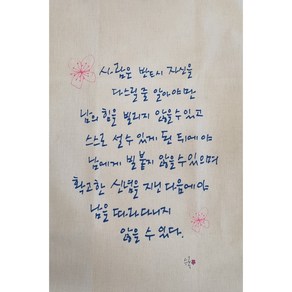 사람은 반드시 자신을
다스릴 줄 알아야만
남의 힘을 빌리지 않을 수 있고
스스로 설 수 있게 된 뒤에야
남에게 빌붙지 않을 수 있으며
확고한 신념을 지닌 다음에야
남을 따라다니지
않을 수 있다.